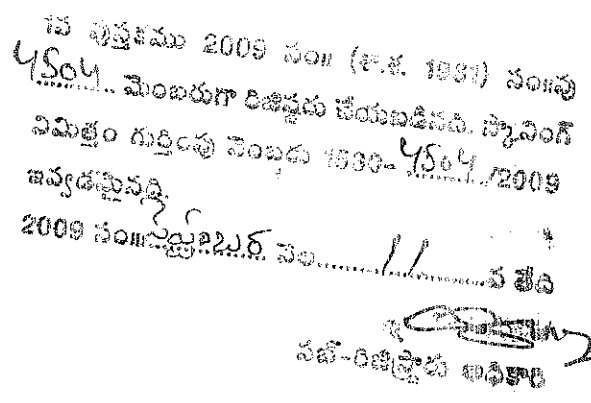 1వ పుస్తకము 2009 సం॥ (శా.శ. 1931) సం॥పు
4504.. మెంబరుగా రిజిష్టరు చేయబడినది. స్కానింగ్
నిమిత్తం గుర్తింపు నెంబరు 1530-4504../2009
ఇవ్వడమైనది.
2009 సం॥సెప్టెంబర్ నెల.....11.....వ తేది
సబ్-రిజిస్ట్రారు అధికారి